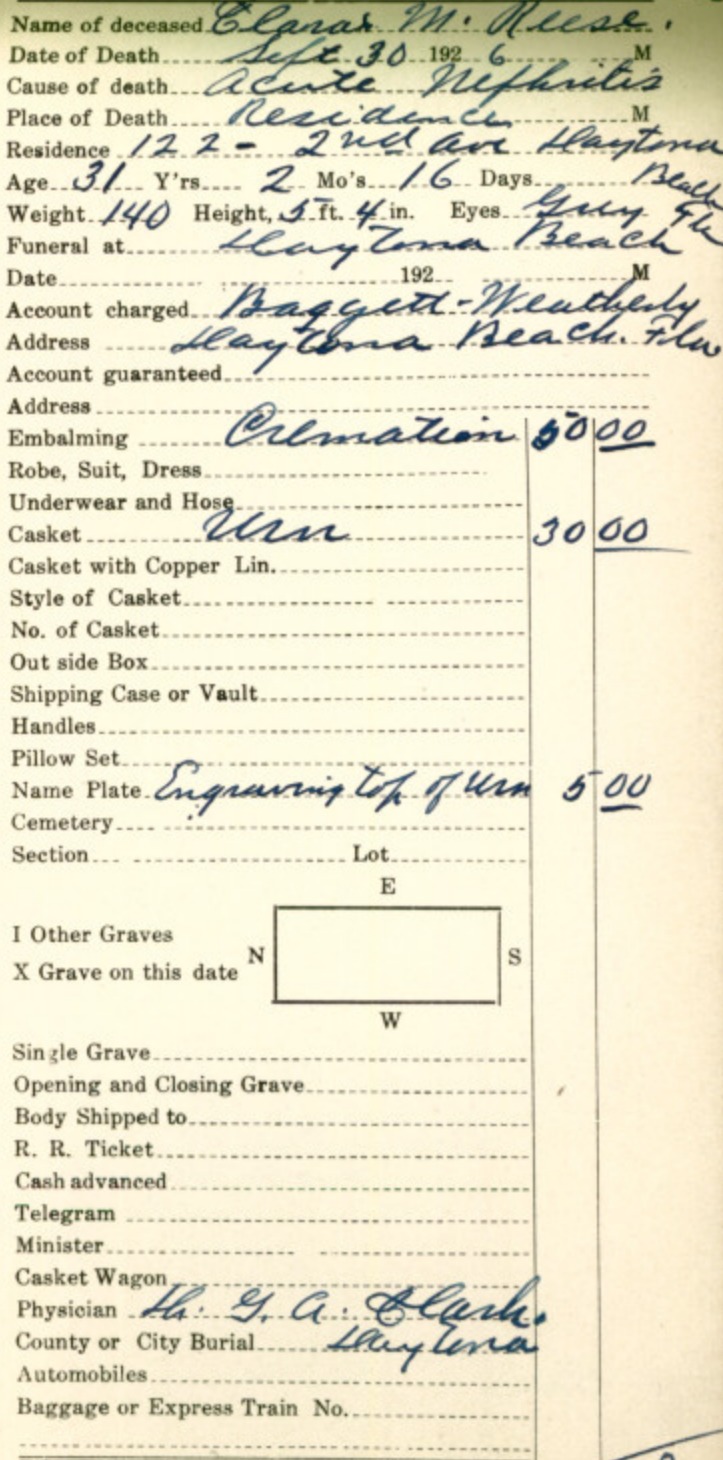 Name of deceased Clara M. Reese.
Date of Death Sept 30 192 6 M
Cause of death Acute Nephritis
Place of Death Residence M
Residence 122 - 2nd Ave Daytona
Beach
Fla
Age 31 Y'rs 2 Mo's 16 Days
Weight 140 Height, 5 ft. 4 in. Eyes Grey
Funeral at Daytona Beach
Date 192 M
Account charged Baggett-Weatherly
Address Daytona Beach. Fla
Account guaranteed
Address
Embalming Cremation 50 00
Robe, Suit, Dress
Underwear and Hose
Casket Urn 30 00
Casket with Copper Lin.
Style of Casket
No. of Casket
Out side Box
Shipping Case or Vault
Handles
Pillow Set
Name Plate Engraving top of Urn 5 00
Cemetery
Section Lot
E
I Other Graves
N S
X Grave on this date
W
Single Grave
Opening and Closing Grave
Body Shipped to
R. R. Ticket
Cash advanced
Telegram
Minister
Casket Wagon
Physician Dr. G. A. Clark.
County or City Burial Daytona
Automobiles
Baggage or Express Train No.